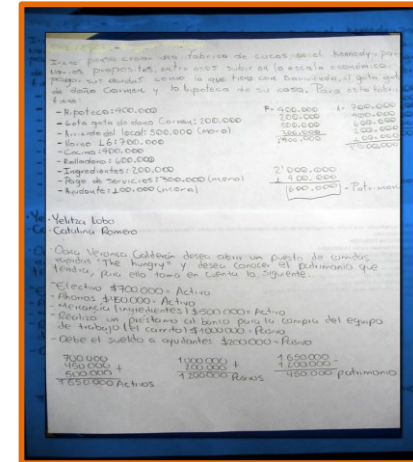 Irma piensa crear una fabrica de cucas en el kennedy por
varios propositos, entre esos subir en la escala económica.
pagar sus deudas como la que tiene con Bonvivida, el gota gota
de doña Carmen y la hipoteca de su casa. Para esta fabri
- Hipoteca: 400.000
- Gota gota de doña Carmen: 200.000
- Arriendo del local: 500.000 (mora)
- Horno LG: 700.000
- Cocina: 400.000
- Rolladora: 600.000
- Ingredientes: 200.000
- Pago de servicios: 300.000 (mora)
- Ayudante: 100.000 (mora)
P= 400.000
200.000
500.000
300.000
1'400.000
A= 700.000
400.000
600.000
200.000
2'000.000
1'400.000
600.000 - Patrimon
Yelitza Lobo
Catalina Romero
Veronica Calderón desea abrir un puesto de comidas
rapidas "The hungry" y desea conocer el patrimonio que
tendra, para ello toma en cuenta lo siguiente:
- Efectivo $700.000 = Activo
- Ahorros $450.000 = Activo
- Mercancia (ingredientes) $500.000 = Activo
- Realizo un préstamo al banco para la compra del equipo
de trabajo (el carrito) $1000.000 = Pasivo
- Debe el sueldo a ayudantes $200.000 = Pasivo
700.000
450.000 +
500.000
1'650.000 Activos
1000.000 +
200.000
1'200.000 Pasivos
1'650.000 -
1'200.000
450.000 patrimonio